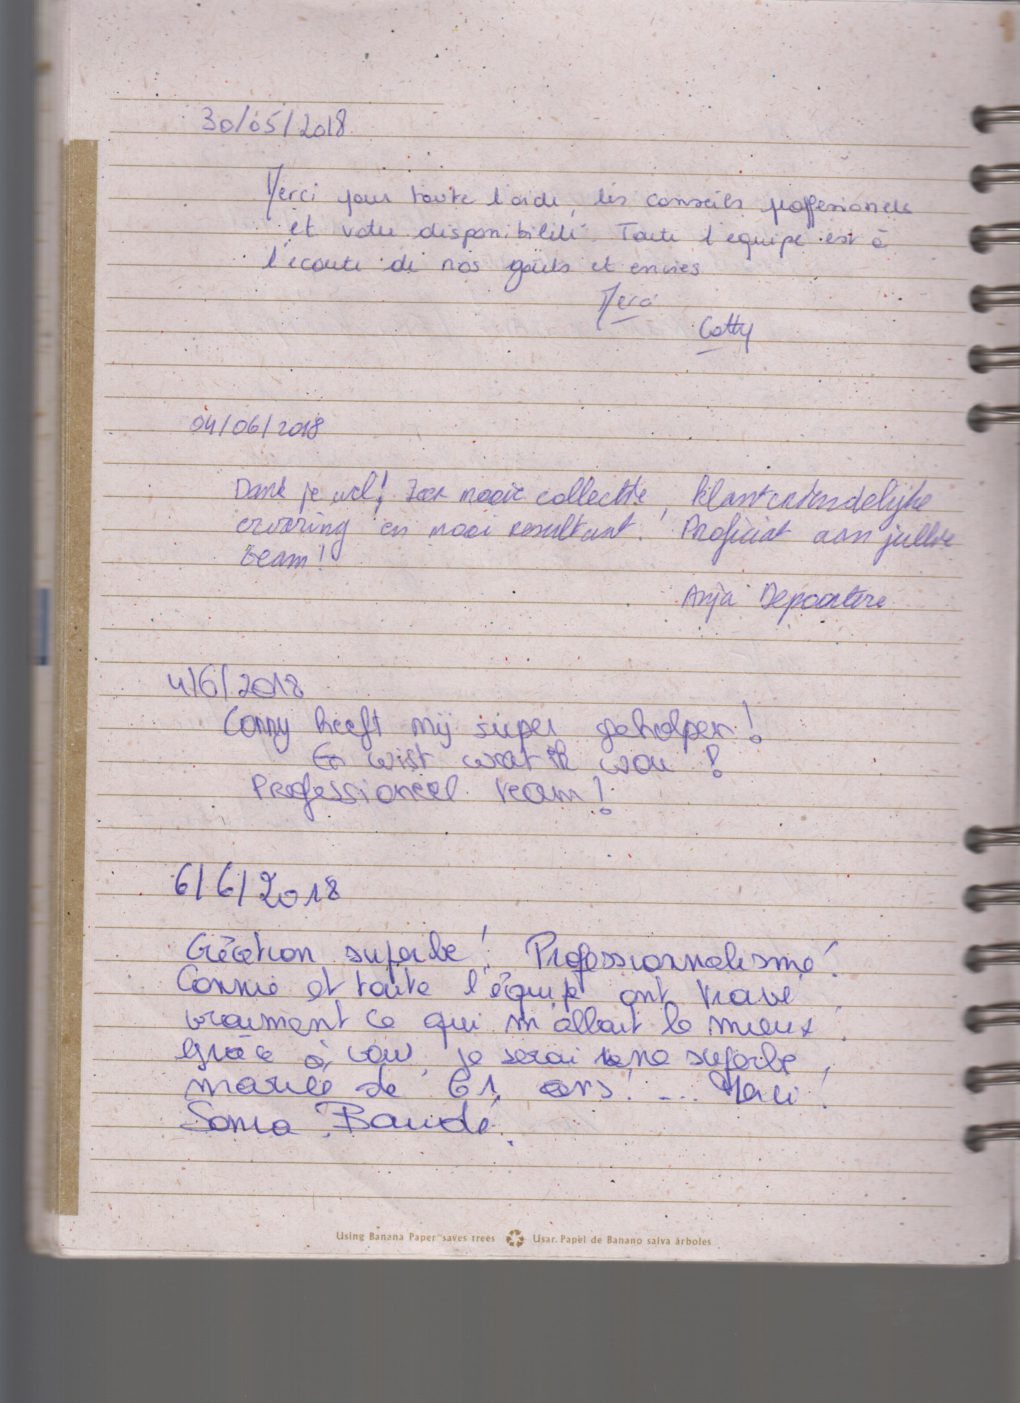 30/05/2018
Merci pour toute l'aide, les conseils proffesionels
et votre disponibilité. Toute l'equipe est à
l'écoute de nos goûts et envies
Merci
Catty
04/06/2018
Dank je wel! Zeer mooie collectie, klantvriendelijke
ervaring en mooi resultaat! Proficiat aan jullie
team!
Anja Depoortere
4/6/2018
Conny heeft mij super geholpen!
En wist wat ik wou!
Professioneel team!
6/6/2018
Création superbe! Professionnalisme!
Connie et toute l'équipe ont trouvé
vraiment ce qui m'allait le mieux!
Grâce à vous, je serai une superbe
mariée de 61 ans! ... Merci!
Sonia Baudé.
Using Banana Paper saves trees Usar Papel de Banano salva árboles